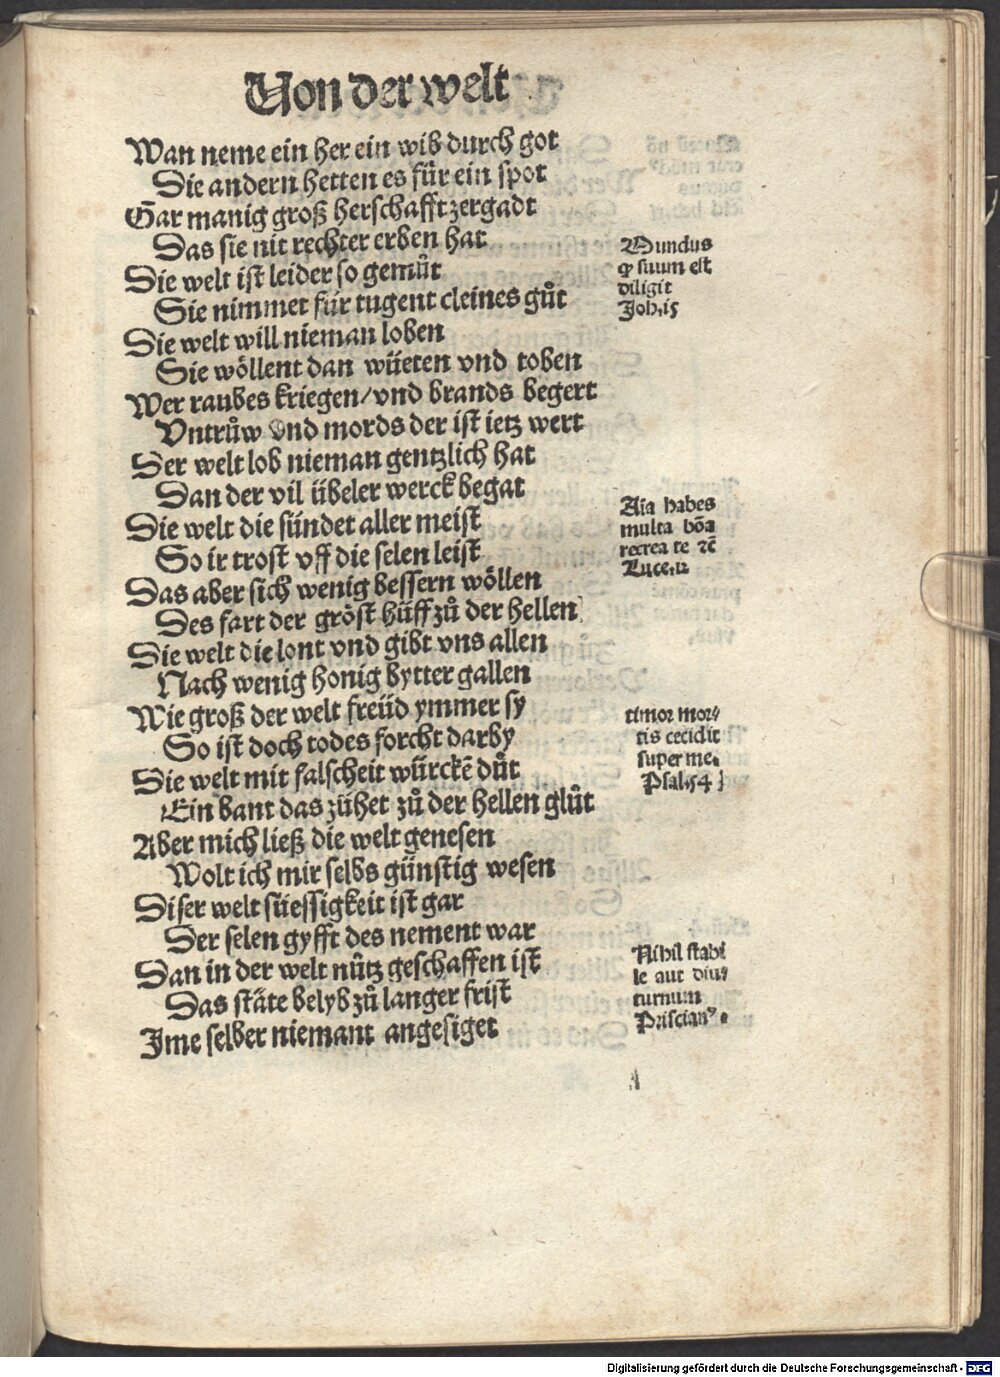 Von der welt
Wan neme ein her ein wib durch got
Die andern hetten es für ein spot
Gar manig groß herschafft zergadt
Das sie nit rechter erben hat
Die welt ist leider so gemůt
Sie nimmet für tugent cleines gůt
Die welt will nieman loben
Sie wöllent dan wüeten vnd toben
Wer raubes kriegen/vnd brands begert
Vntrůw vnd mords der ist ietz wert
Der welt lob nieman gentzlich hat
Dan der vil übeler werck begat
Die welt die sündet aller meist
So ir trost vff die selen leist
Das aber sich wenig bessern wöllen
Des fart der gröst hüff zů der hellen
Die welt die lont vnd gibt vns allen
Nach wenig honig bytter gallen
Wie groß der welt freüd ymmer sy
So ist doch todes forcht darby
Die welt mit falscheit würckē důt
Ein bant das zühet zů der hellen glůt
Aber mich ließ die welt genesen
Wolt ich mir selbs günstig wesen
Diser welt süessigkeit ist gar
Der selen gyfft des nement war
Dan in der welt nütz geschaffen ist
Das stäte belyb zů langer frist
Ime selber niemant angesiget
Mundus
ꝙ suum est
diligit
Joh.15
Aīa habes
multa bōa
recrea te ⁊c̄
Luce.12
timor mor/
tis cecidit
super me.
Psal.54
Nihil stabi
le aut diu/
turnum
Priscianꝰ.
A
Digitalisierung gefördert durch die Deutsche Forschungsgemeinschaft - DFG